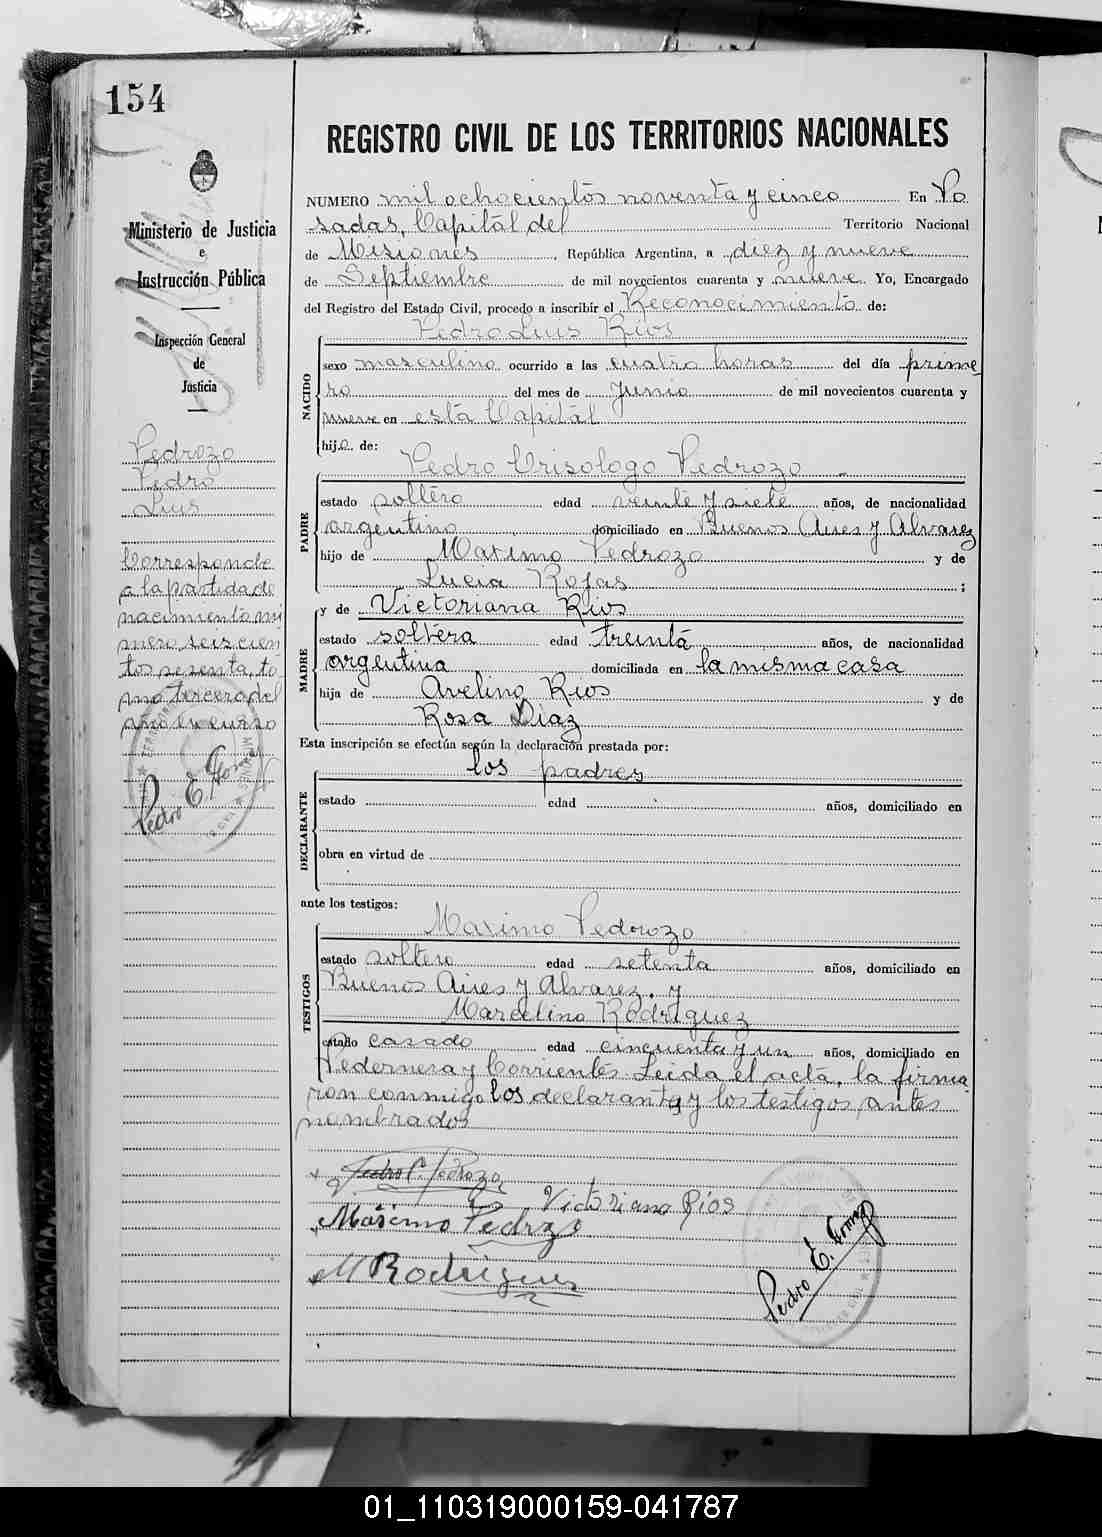 154
Ministerio de Justicia
e
Instrucción Pública
Inspección General
de
Justicia
Pedrozo
Pedro
Luis
Corresponde
a la partida de
nacimiento nú
mero seiscien
tos sesenta, to
mo tercero del
año en curso
Pedro E. Gomez
REGISTRO CIVIL DE LOS TERRITORIOS NACIONALES
NUMERO mil ochocientos noventa y cinco En Po
sadas, Capital del Territorio Nacional
de Misiones, República Argentina, a diez y nueve
de Septiembre de mil novecientos cuarenta y nueve. Yo, Encargado
del Registro del Estado Civil, procedo a inscribir el Reconocimiento de:
Pedro Luis Rios
NACIDO
sexo masculino ocurrido a las cuatro horas del día prime
ro del mes de Junio de mil novecientos cuarenta y
nueve en esta Capital
hijo de:
Pedro Crisologo Pedrozo
PADRE
estado soltero edad veinte y siete años, de nacionalidad
argentino domiciliado en Buenos Aires y Alvarez
hijo de Maximo Pedrozo y de
Lucia Rojas ;
y de Victoriana Rios
MADRE
estado soltera edad treinta años, de nacionalidad
argentina domiciliada en la misma casa
hija de Avelino Rios y de
Rosa Diaz
Esta inscripción se efectúa según la declaración prestada por:
los padres
DECLARANTE
estado edad años, domiciliado en
obra en virtud de
ante los testigos:
Maximo Pedrozo
TESTIGOS
estado soltero edad setenta años, domiciliado en
Buenos Aires y Alvarez. y
Marcelino Rodriguez
estado casado edad cincuenta y un años, domiciliado en
Pedernera y Corrientes. Leida el acta, la firma
ron conmigo los declarantes y los testigos antes
nombrados
Pedro C. Pedrozo
Victoriana Rios
Maximo Pedrozo
M Rodrigues
Pedro E. Gomez
01_110319000159-041787